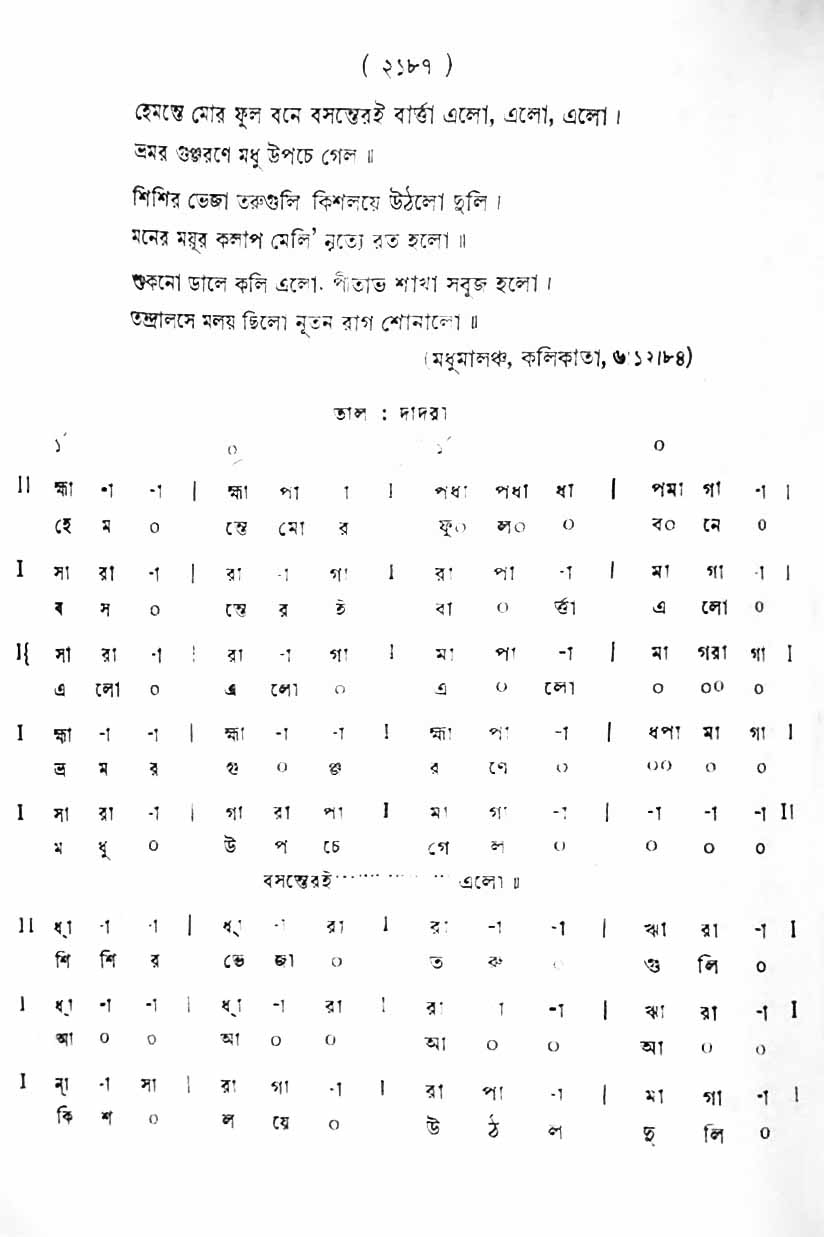 ( ২১৮৭ )
হেমন্তে মোর ফুল বনে বসন্তেরই বার্ত্তা এলো, এলো, এলো ।
ভ্রমর গুঞ্জরণে মধু উপচে গেল ॥
শিশির ভেজা তরুগুলি কিশলয়ে উঠলো দুলি ।
মনের ময়ূর কলাপ মেলি’ নৃত্যে রত হলো ॥
শুকনো ডালে কলি এলো. পীতাভ শাখা সবুজ হলো ।
তন্দ্রালসে মলয় ছিলো নূতন রাগ শোনালো ॥
(মধুমালঞ্চ, কলিকাতা, ৬।১২।৮৪)
তাল : দাদরা
১´ ০ ১´ ০
II হ্মা -া -া | হ্মা পা া I পধা পধা ধা | পমা গা -া I
হে ম ০ ন্তে মো র ফু০ ল০ ০ ব০ নে ০
I সা রা -া | রা -া গা I রা পা -া | মা গা -া I
ব স ০ ন্তে র ই বা ০ র্ত্তা এ লো ০
I{ সা রা -া | রা -া গা I মা পা -া | মা গরা গা I
এ লো ০ এ লো ০ এ ০ লো ০ ০০ ০
I হ্মা -া -া | হ্মা -া -া I হ্মা পা -া | ধপা মা গা I
ভ্র ম র গু ০ ঞ্জ র ণে ০ ০০ ০ ০
I সা রা -া | গা রা পা I মা গা -া | -া -া -া II
ম ধু ০ উ প চে গে ল ০ ০ ০ ০
বসন্তেরই·················এলো ॥
II ধ্া -া -া | ধ্া -া রা I রা -া -া | ঋা রা -া I
শি শি র ভে জা ০ ত রু ০ গু লি ০
I ধ্া -া -া | ধ্া -া রা I রা া -া | ঋা রা -া I
আ ০ ০ আ ০ ০ আ ০ ০ আ ০ ০
I ন্া -া সা | রা গা -া I রা পা -া | মা গা -া I
কি শ ০ ল য়ে ০ উ ঠ ল দু লি ০